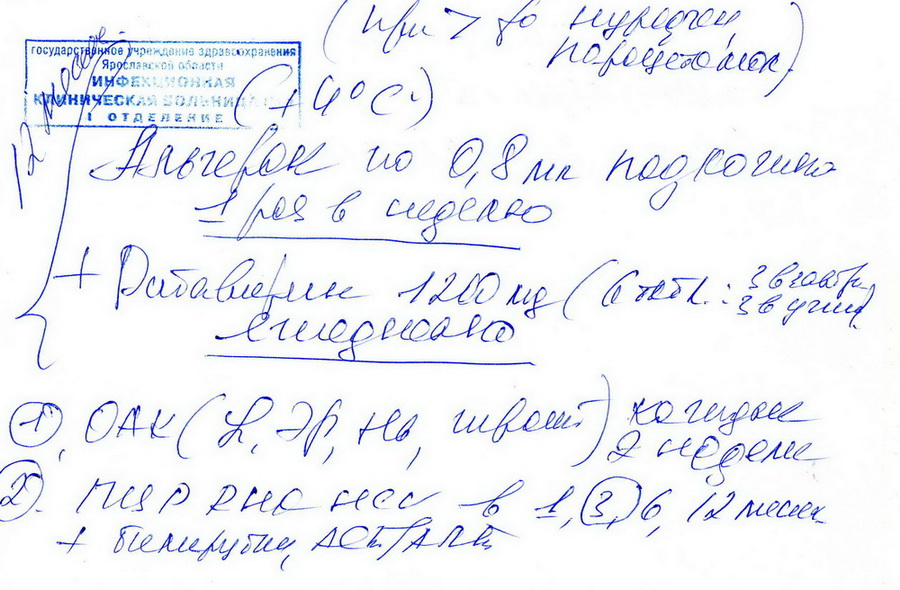 (при > t° нурофен,
парацетамол)
государственное учреждение здравоохранения
Ярославской области
ИНФЕКЦИОННАЯ
КЛИНИЧЕСКАЯ БОЛЬНИЦА
1 ОТДЕЛЕНИЕ
12 месяцев
(+4° C)
Альгерон по 0,8 мл подкожно
1 раз в неделю
+ Рибавирин 1200 мg (6 табл.: 3 в завтр.
3 в ужин)
ежедневно
1, ОАК (L, Эр, Hb, тромб) каждые
2 недели
2. ПЦР РНК HCV в 1, 3, 6, 12 месяц
+ билирубин, АСТ/АЛТ